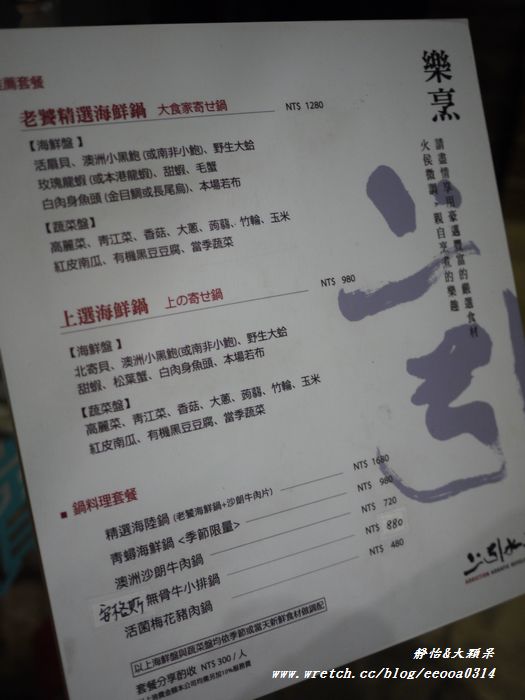 薦套餐
老饕精選海鮮鍋 大食家寄せ鍋 NT$ 1280
【海鮮盤】
活扇貝、澳洲小黑鮑(或南非小鮑)、野生大蛤
玫瑰龍蝦(或本港龍蝦)、甜蝦、毛蟹
白肉身魚頭(金目鯛或長尾烏)、本場若布
【蔬菜盤】
高麗菜、靑江菜、香菇、大蔥、蒟蒻、竹輪、玉米
紅皮南瓜、有機黑豆豆腐、當季蔬菜
上選海鮮鍋 上の寄せ鍋 NT$ 980
【海鮮盤】
北寄貝、澳洲小黑鮑(或南非小鮑)、野生大蛤
甜蝦、松葉蟹、白肉身魚頭、本場若布
【蔬菜盤】
高麗菜、靑江菜、香菇、大蔥、蒟蒻、竹輪、玉米
紅皮南瓜、有機黑豆豆腐、當季蔬菜
鍋料理套餐
精選海陸鍋 (老饕海鮮鍋+沙朗牛肉片) NT$ 1680
青蟳海鮮鍋 <季節限量> NT$ 980
澳洲沙朗牛肉鍋 NT$ 720
安格斯無骨牛小排鍋 NT$ 880
活菌梅花豬肉鍋 NT$ 480
以上海鮮盤與蔬菜盤均依季節或當天新鮮食材做調配
套餐分享酌收 NT$ 300 / 人
樂烹
請盡情享用豪邁豐富的嚴選食材
火侯微調，親自烹煮的樂趣
上引水
靜怡&大顆呆
www.wretch.cc/blog/eeooa0314